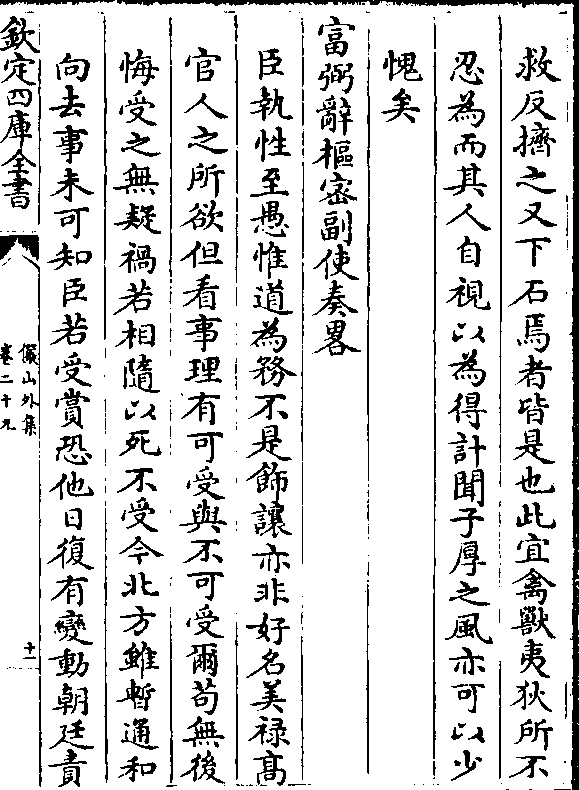 救反擠之又下石焉者皆是也此宜禽獸夷狄所不
忍為而其人自視以為得計聞子厚之風亦可以少
愧矣
富弼辭樞密副使奏畧
臣執性至愚惟道為務不是飾讓亦非好名美禄髙
官人之所欲但看事理有可受與不可受爾苟無後
悔受之無疑禍若相隨以死不受今北方雖暫通和
向去事未可知臣若受賞恐他日復有變動朝廷責
欽定四庫全書
儼山外集
卷二十九
十一